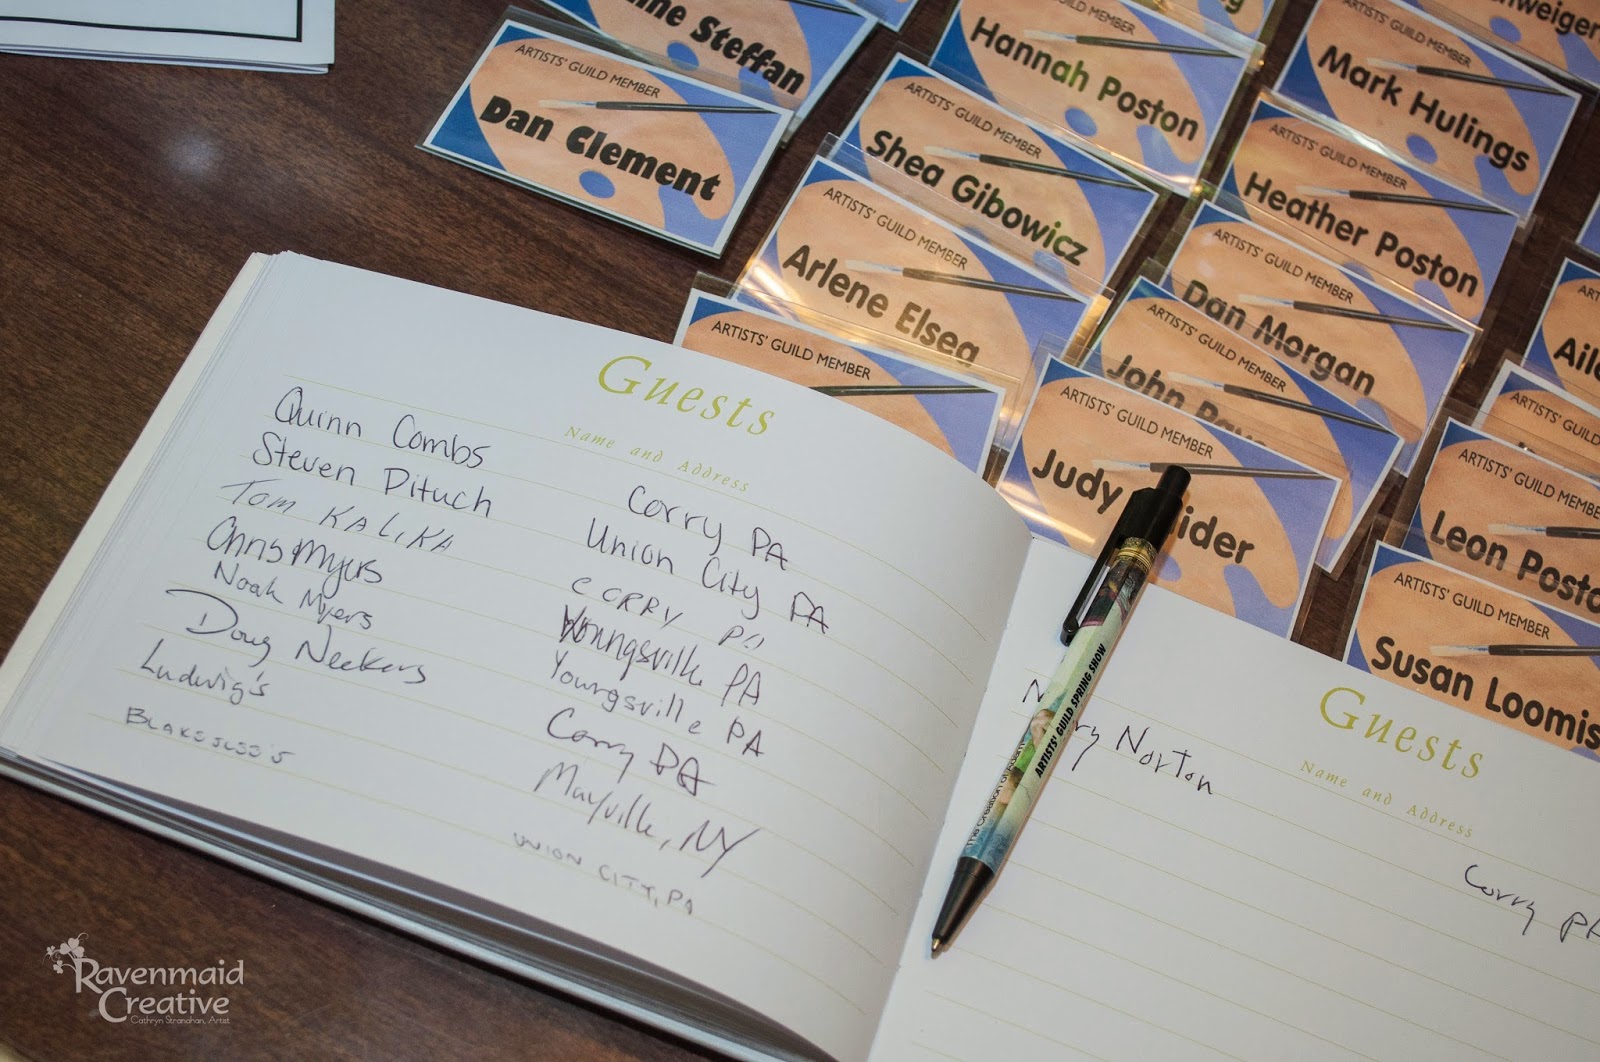 Steffan
ARTISTS' GUILD MEMBER
Dan Clement
Hannah Poston
ARTISTS' GUILD MEMBER
Mark Hulings
ARTISTS' GUILD MEMBER
Shea Gibowicz
ARTISTS' GUILD MEMBER
Heather Poston
ARTISTS' GUILD MEMBER
Arlene Elsea
ARTISTS' GUILD MEMBER
Dan Morgan
ARTISTS' GUILD MEMBER
John
ARTISTS' GUILD MEMBER
ARTISTS' GUILD MEMBER
Judy
ARTISTS' GUILD MEMBER
Leon Posto
ARTISTS' GUILD MEMBER
Susan Loomis
Guests
Name and Address
Quinn Combs Corry PA
Steven Pituch Union City PA
Tom KALIKA CORRY PA
Chris Myers Youngsville PA
Noah Myers Youngsville PA
Doug Neckers Corry PA
Ludwig's Mayville, NY
BLAKESLEE'S UNION CITY, PA
Guests
Name and Address
Norton
Corry PA
ARTISTS' GUILD SPRING SHOW
Ravenmaid
Creative
Cathryn Stranahan, Artist